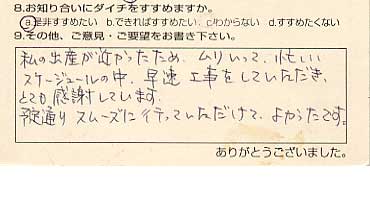 8.お知り合いにダイチをすすめますか。
a.是非すすめたい b.できればすすめたい c.わからない d.すすめたくない
9.その他、ご意見・ご要望をお書き下さい。
私の出産が近かったため、ムリいって、忙しい
スケージュールの中、早速 工事をしていただき、
とても感謝しています。
予定通り スムーズに行っていただけて、よかったです。
ありがとうございました。